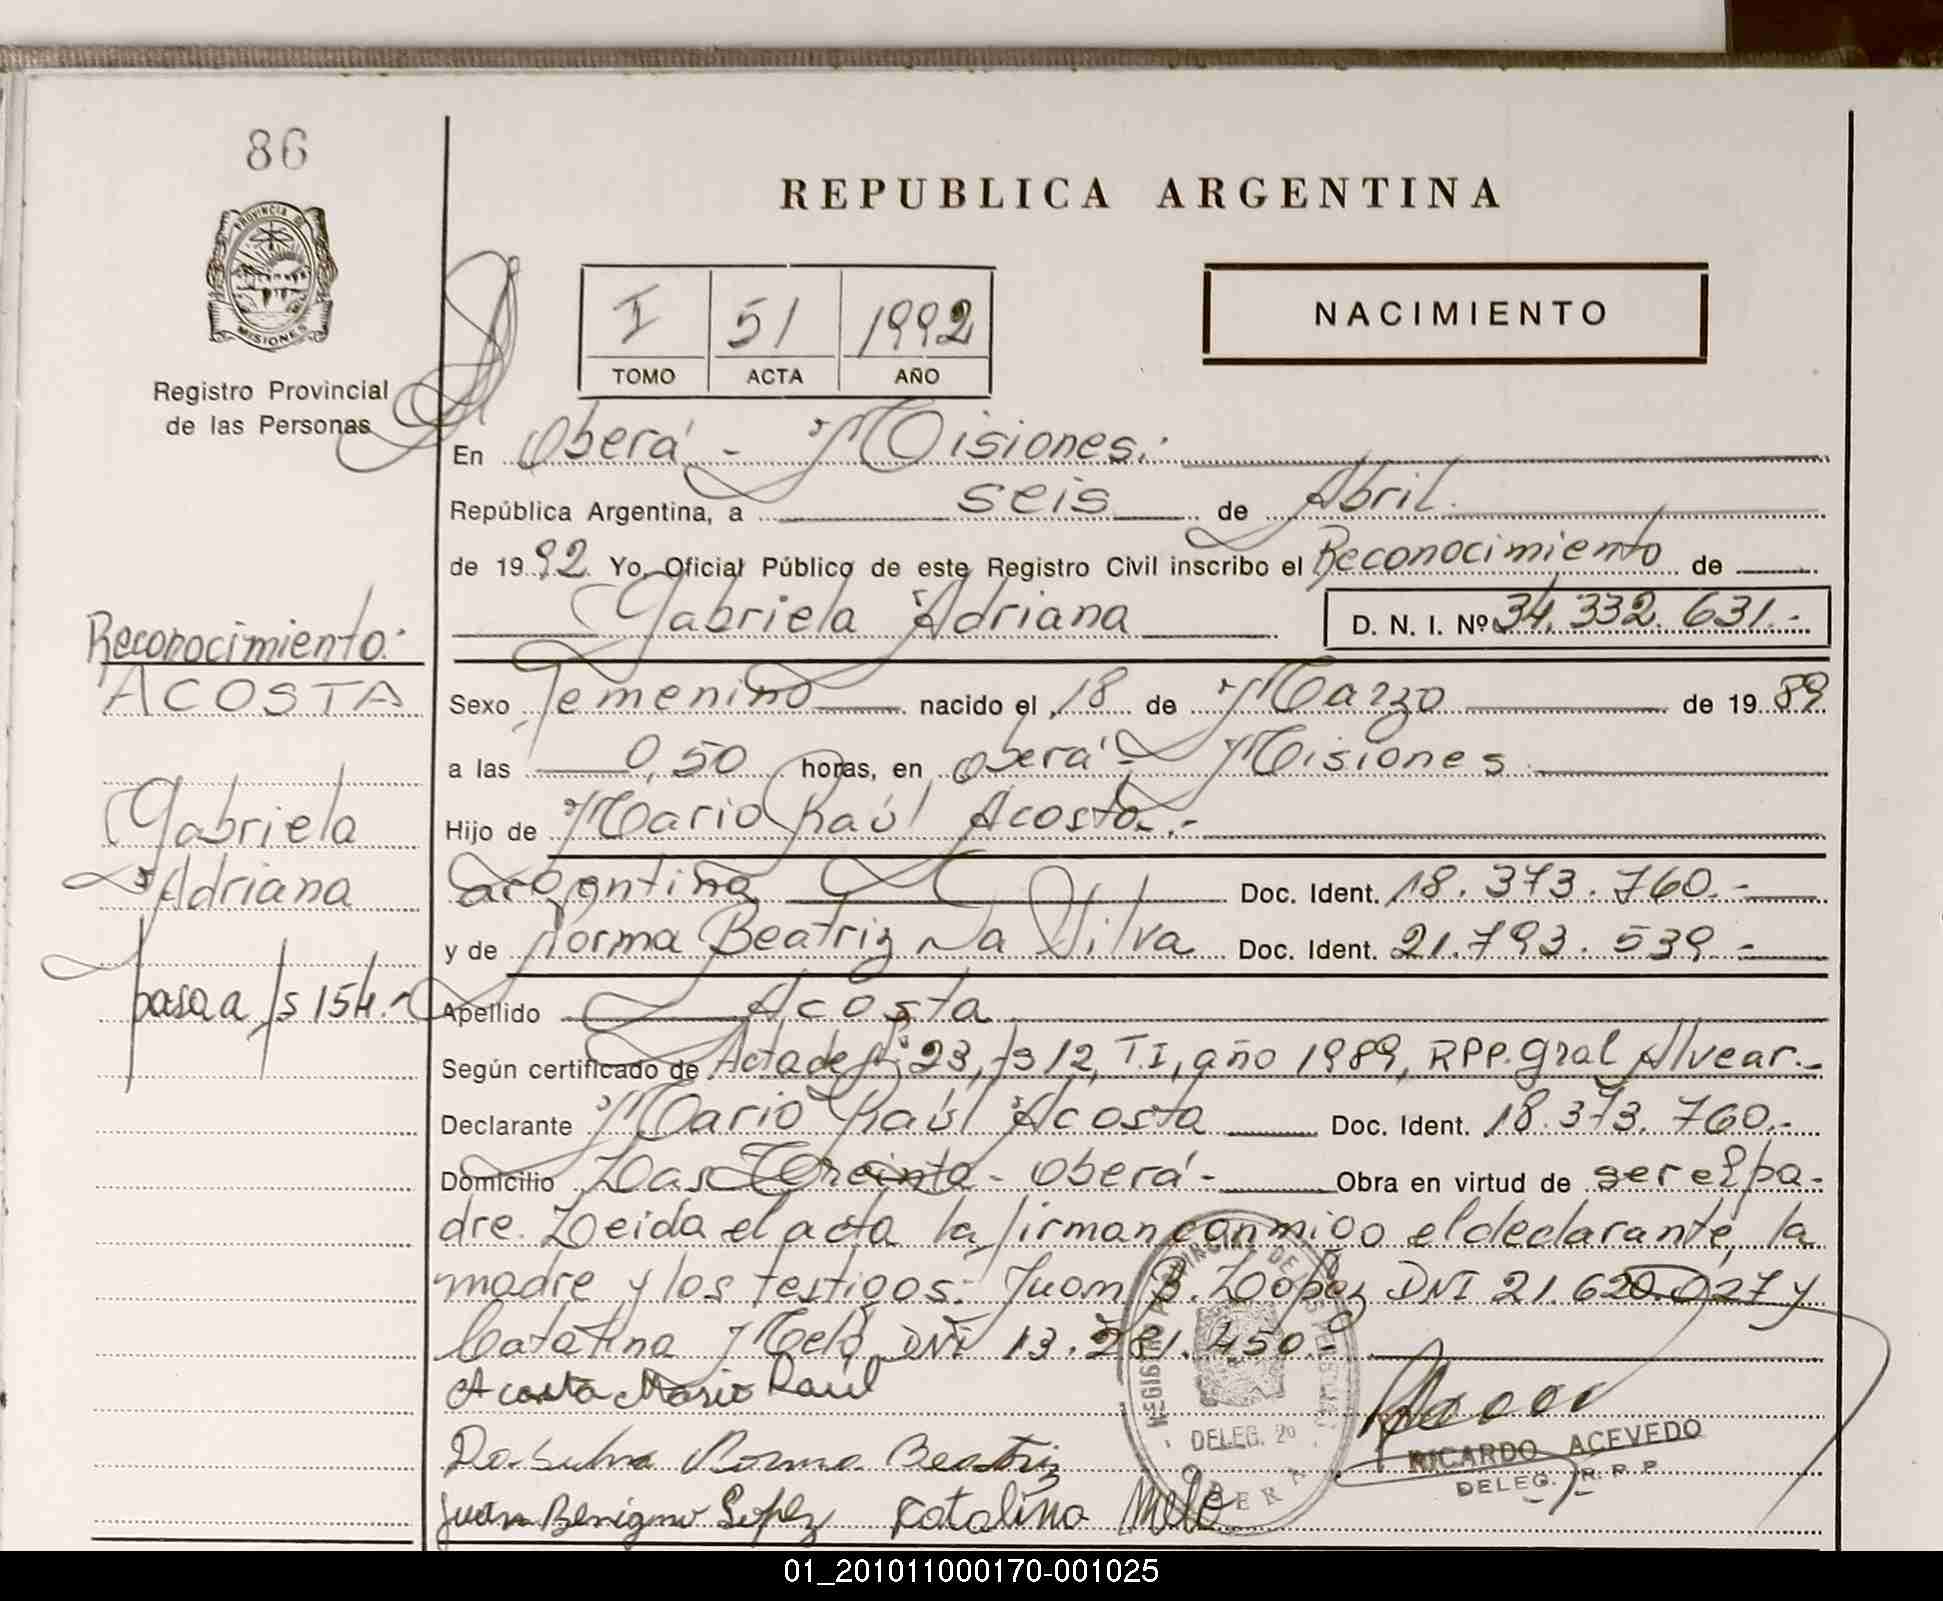 86
PROVINCIA D
MISIONES
Registro Provincial
de las Personas
REPUBLICA ARGENTINA
I 51 1992
TOMO ACTA AÑO
NACIMIENTO
En Oberá - Misiones.
República Argentina, a seis de Abril.
de 1992. Yo, Oficial Público de este Registro Civil inscribo el Reconocimiento de
Gabriela Adriana D. N. I. Nº 34.332.631.-
Reconocimiento:
ACOSTA
Gabriela
Adriana
pasa a fs 154.-
Sexo Femenino nacido el 18 de Marzo de 1989
a las 0,50 horas, en Oberá - Misiones
Hijo de Mario Raúl Acosta.-
argentina Doc. Ident. 18.373.760.-
y de Norma Beatriz Da Silva Doc. Ident. 21.793.539.-
Apellido Acosta
Según certificado de Acta de Nº 23, fs 12, T.I, año 1989, RPP. Gral Alvear.-
Declarante Mario Raúl Acosta Doc. Ident. 18.373.760.-
Domicilio Las Treinta - Oberá - Obra en virtud de ser el pa-
dre. Leida el acta la firman conmigo el declarante, la
madre y los testigos: Juan B. López DNI 21.620.027 y
Catalina Melo, DNI 13.281.450.-
Acosta Mario Raúl
Da Silva Norma Beatriz
Juan Benigno Lopez Katalina Melo
DELEG. 20
RICARDO ACEVEDO
DELEG. R. P. P.
01_201011000170-001025